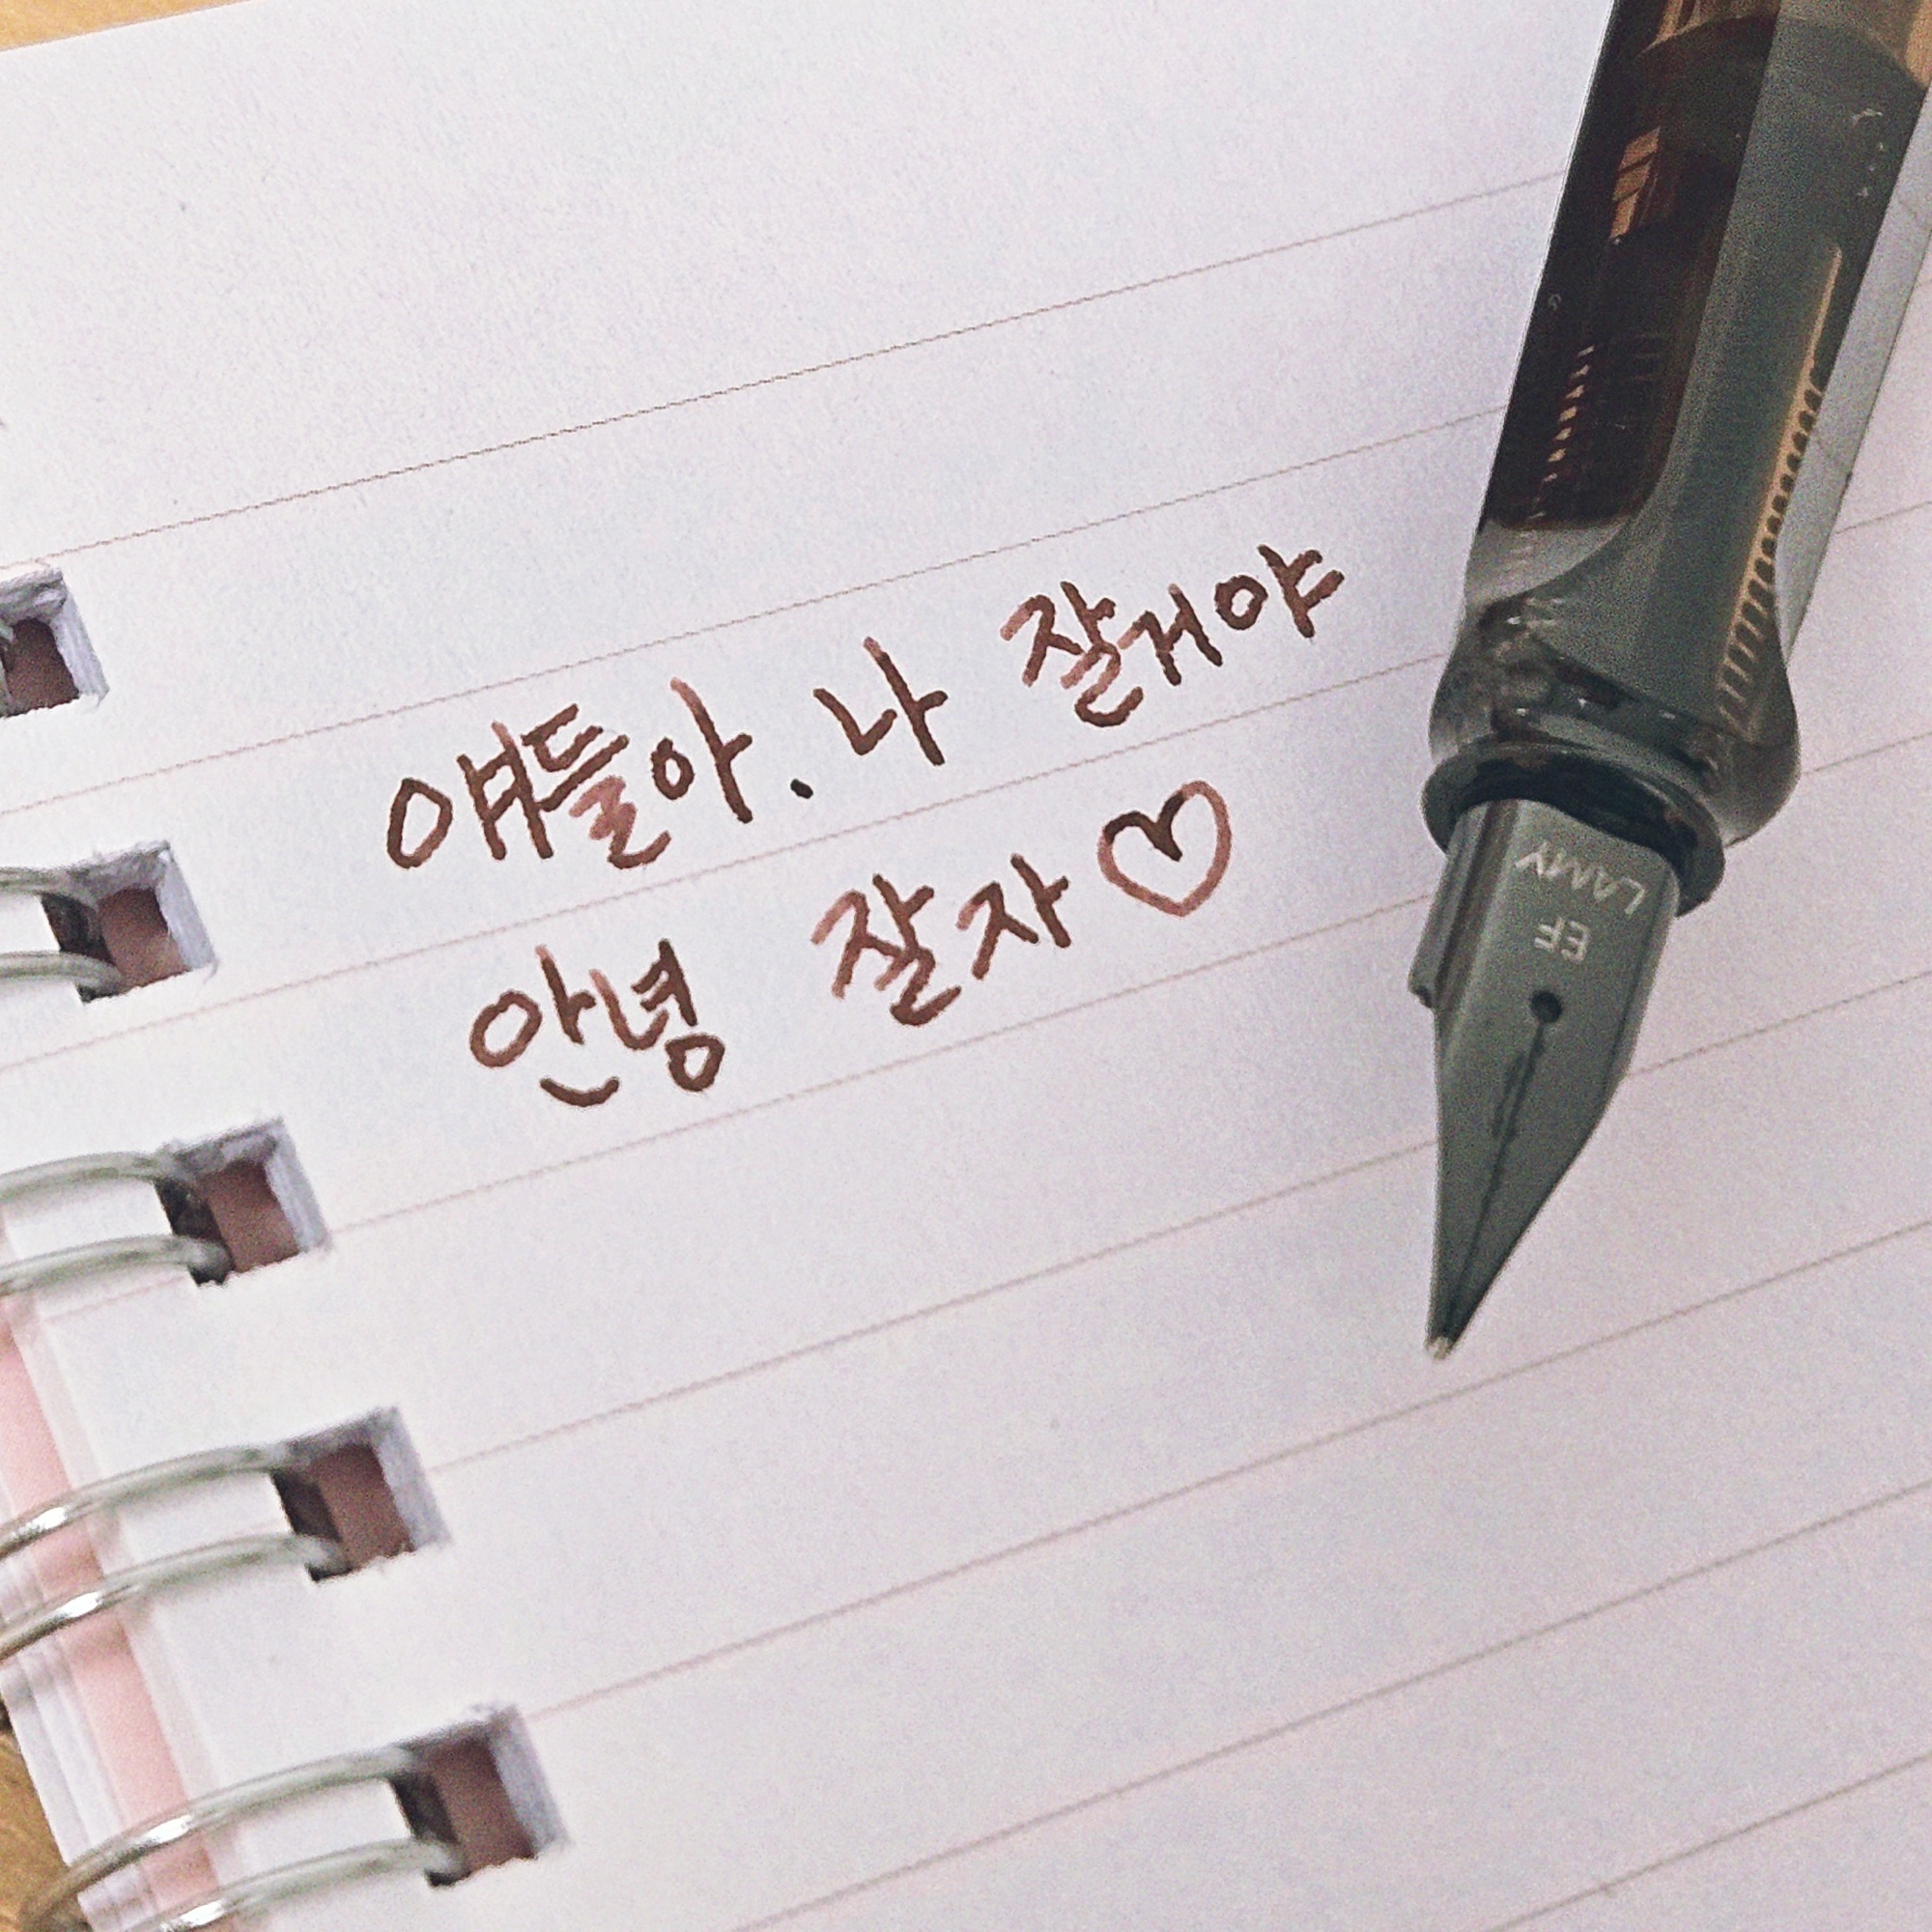 얘들아. 나 잘거야
안녕 잘자♡
LAMY
EF